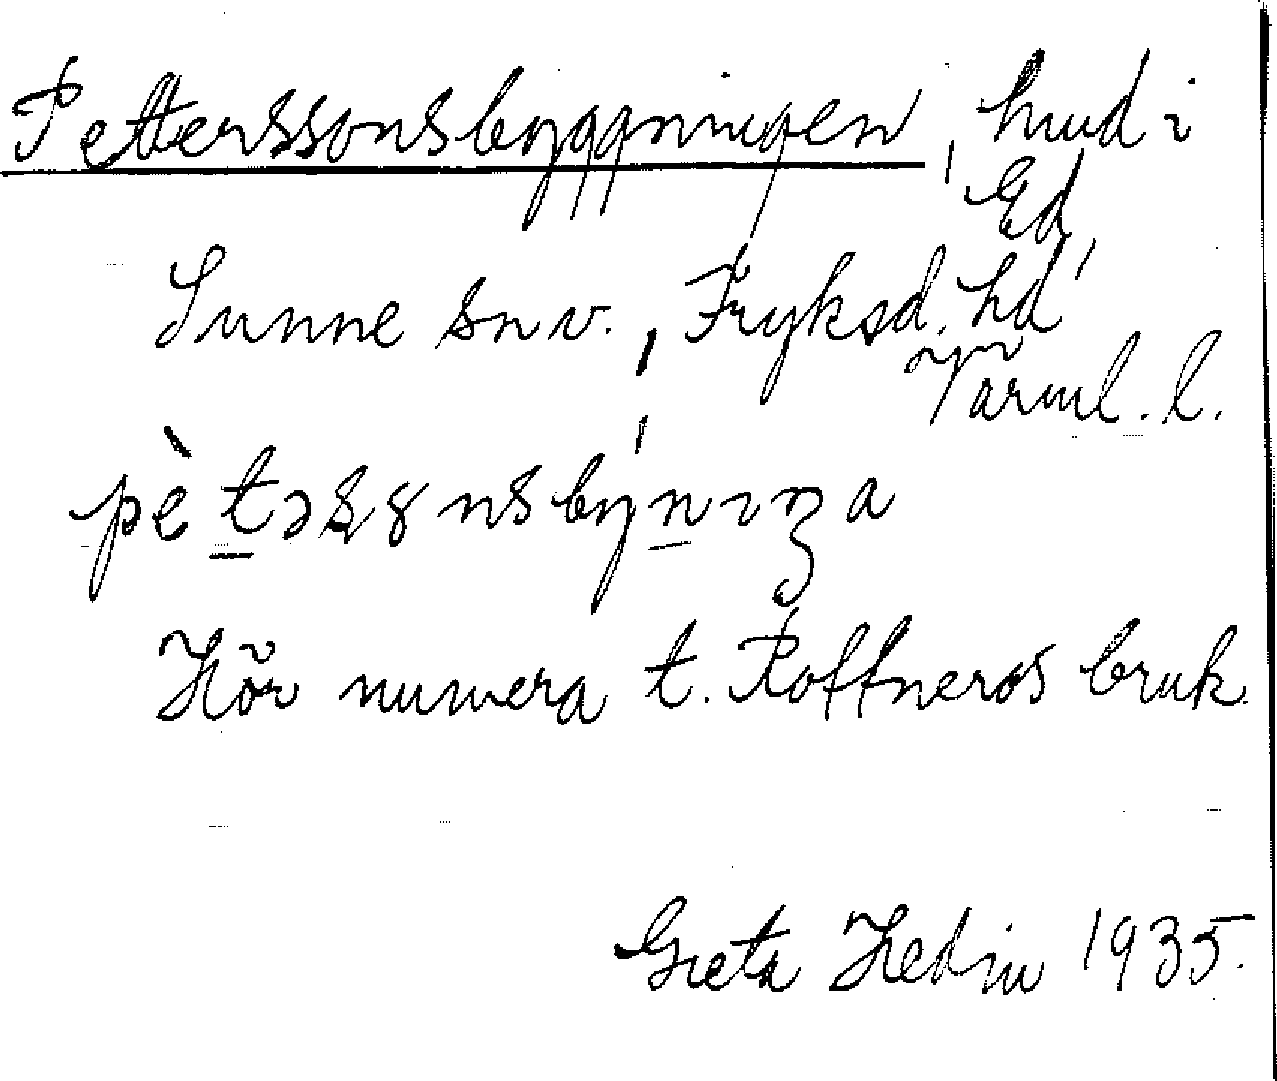 Petterssonsbyggningen, hmd i
Ed,
Sunne snv., Fryksd. hd
Värml. l.
pètəsȣnsbýnıŋa
Hör numera t. Rottneros bruk.
Greta Hedin 1935.